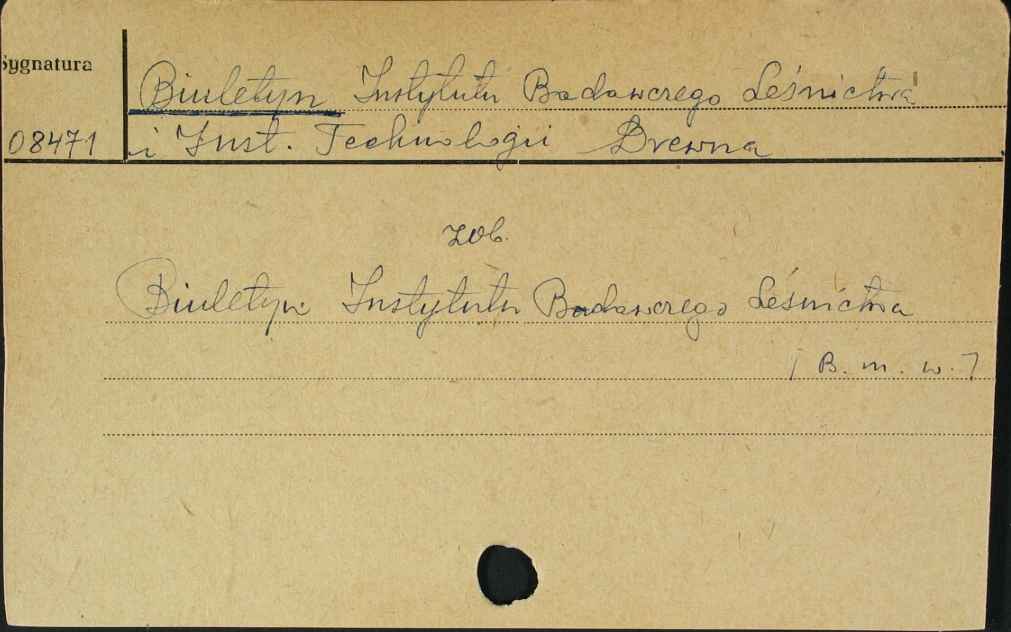 Sygnatura
Biuletyn Instytutu Badawczego Leśnictwa
08471 i Inst. Technologii Drewna
zob.
Biuletyn Instytutu Badawczego Leśnictwa
[B. m. w.]